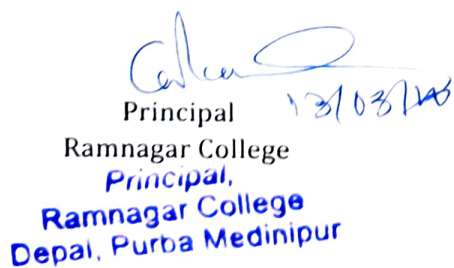 13/03/
Principal
Ramnagar College
Principal,
Ramnagar College
Depal, Purba Medinipur